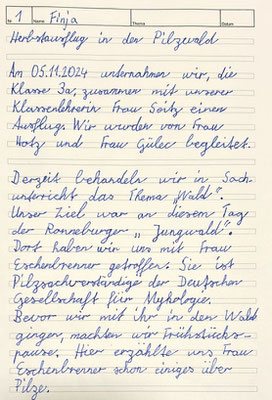 Nr. 1 Name Finja Thema Datum
Herbstausflug in den Pilzwald
Am 05.11.2024 unternahmen wir, die
Klasse 3a, zusammen mit unserer
Klassenlehrerin Frau Seitz einen
Ausflug. Wir wurden von Frau
Hotz und Frau Gülec begleitet.
Derzeit behandeln wir in Sach-
unterricht das Thema „Wald".
Unser Ziel war an diesem Tag
der Ronneburger „Jungwald".
Dort haben wir uns mit Frau
Eschenbrenner getroffen. Sie ist
Pilzsachverständige der Deutschen
Gesellschaft für Mykologie.
Bevor wir mit ihr in den Wald
gingen, machten wir Frühstücks-
pause. Hier erzählte uns Frau
Eschenbrenner schon einiges über
Pilze.